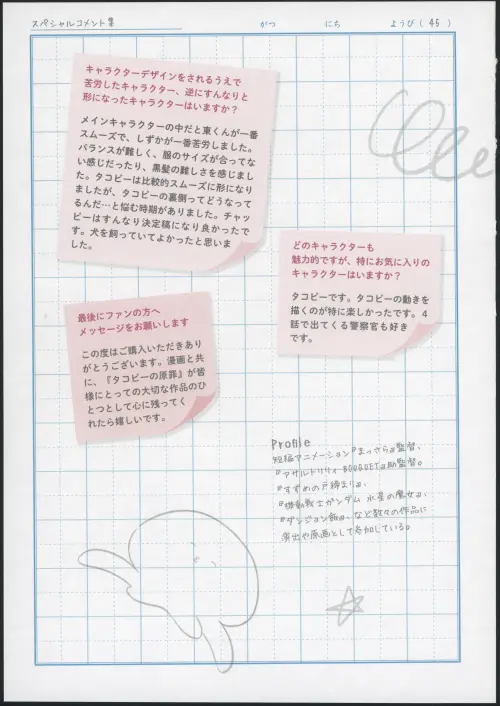 スペシャルコメント集
がつ にち ようび(45)
キャラクターデザインをされるうえで
苦労したキャラクター、逆にすんなりと
形になったキャラクターはいますか?
メインキャラクターの中だと東くんが一番
スムーズで、しずかが一番苦労しました。
バランスが難しく、服のサイズが合ってな
い感じだったり、黒髪の難しさを感じまし
た。タコピーは比較的スムーズに形になり
ましたが、タコピーの裏側ってどうなって
るんだ…と悩む時期がありました。チャッ
ピーはすんなり決定稿になり良かったで
す。犬を飼っていてよかったと思いま
した。
どのキャラクターも
魅力的ですが、特にお気に入りの
キャラクターはいますか?
タコピーです。タコピーの動きを
描くのが特に楽しかったです。4
話で出てくる警察官も好き
です。
最後にファンの方へ
メッセージをお願いします
この度はご購入いただきあり
がとうございます。漫画と共
に、『タコピーの原罪』が皆
様にとっての大切な作品のひ
とつとして心に残ってく
れたら嬉しいです。
Profile
短編アニメーション『まっさら』監督、
『アサルトリリィ BOUQUET』助監督。
『すずめの戸締まり』、
『機動戦士ガンダム 水星の魔女』、
『ダンジョン飯』、など数々の作品に
演出や原画として参加している。